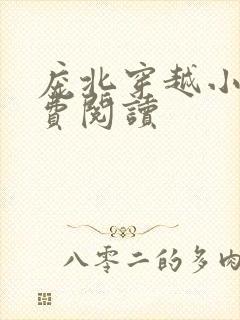 庶北穿越小
費閱讀
八零二的多肉